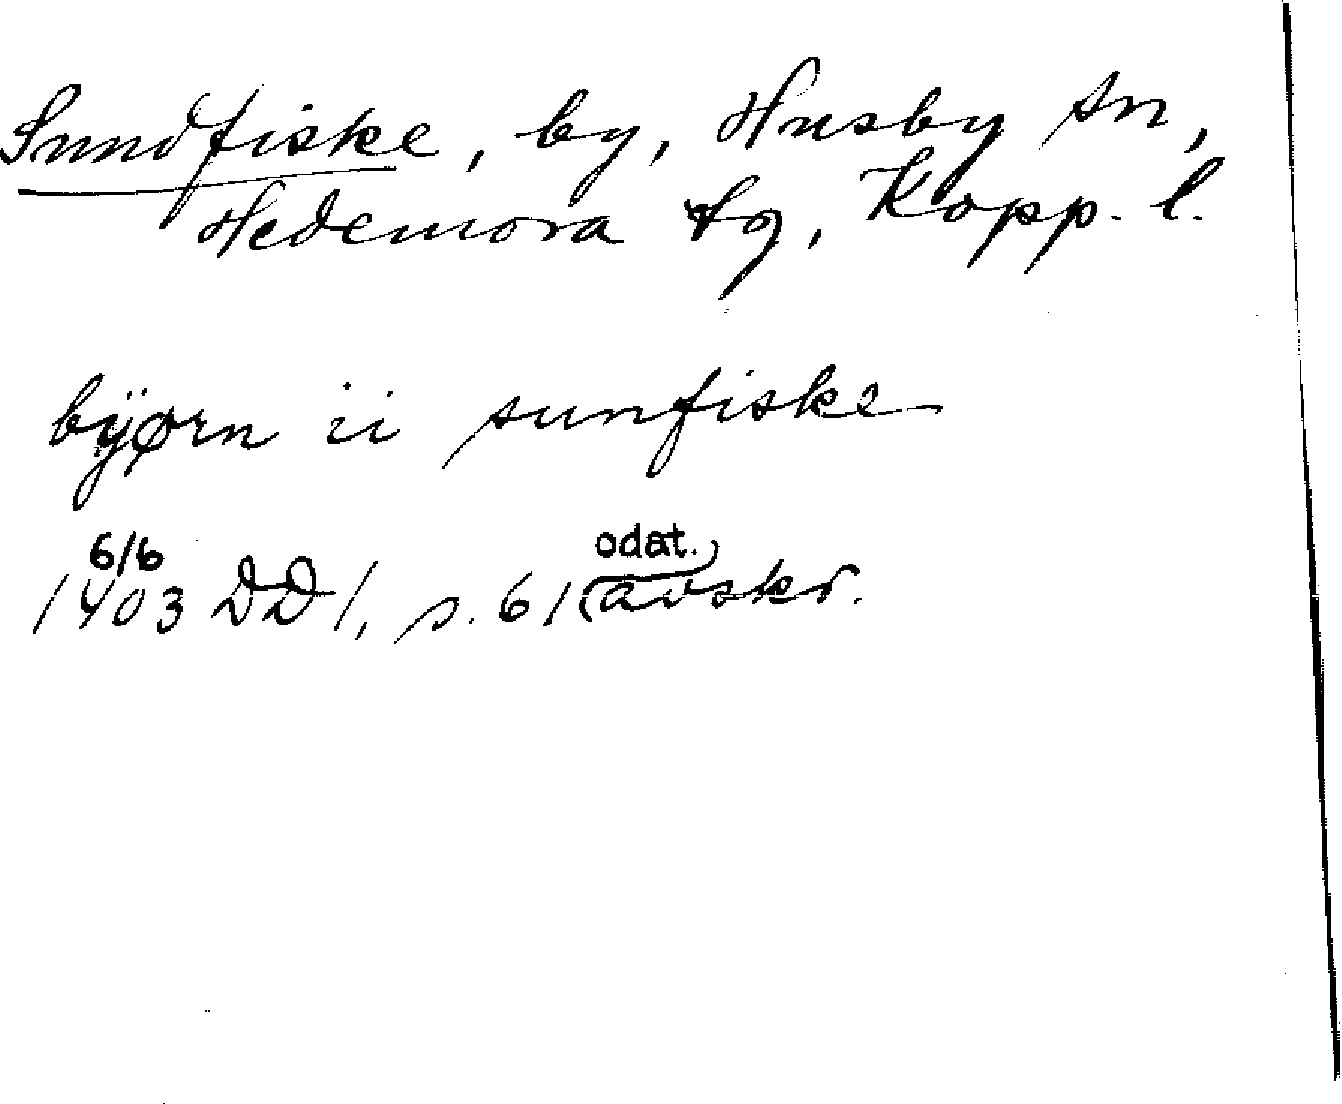 Sundfiske, by, Husby sn,
Hedemora tg, Kopp. l.
byørn ii sunfiske
6/6 odat.
1403 DD 1, s. 61 (avskr.